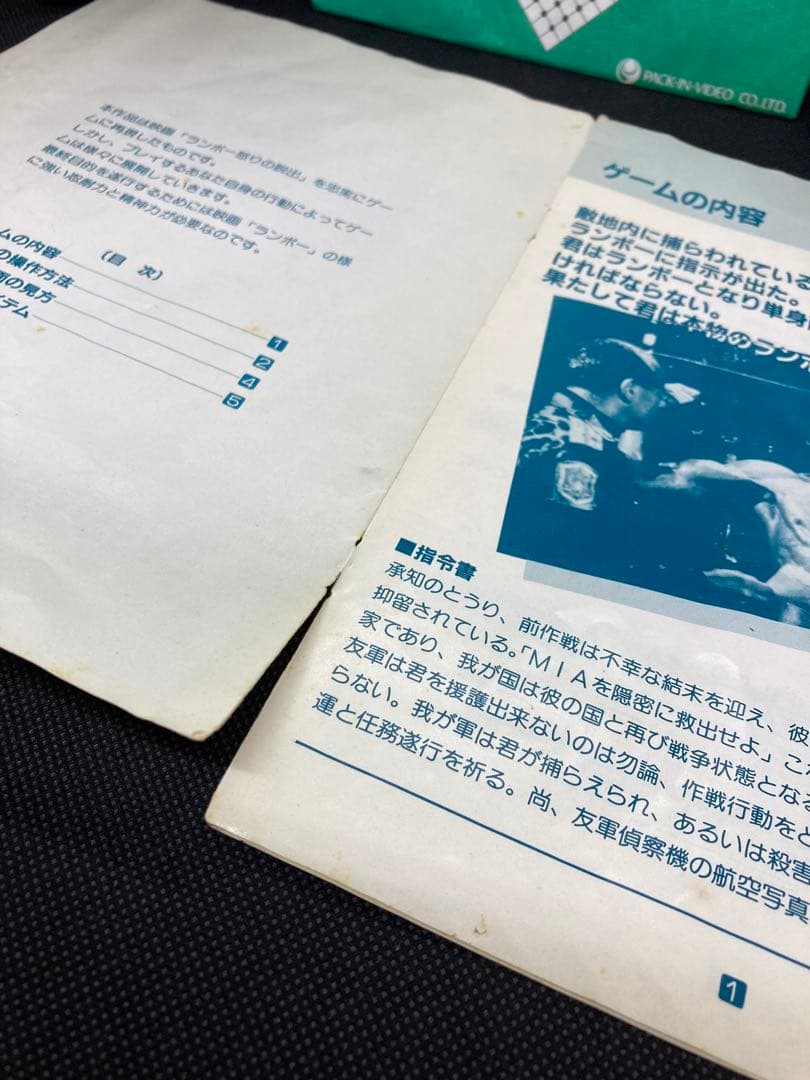 PACK-IN-VIDEO CO.,LTD.
本作品は映画「ランボー怒りの脱出」を忠実にゲー
ムに再現したものです。
しかし、プレイするあなた自身の行動によってゲー
ムは様々に展開していきます。
最終目的を遂行するためには映画「ランボー」の様
に強い忍耐力と精神力が必要なのです。
(目 次)
ムの内容 1
の操作方法 2
面の見方 4
テム 5
ゲームの内容
敵地内に捕らわれている
ランボーに指示が出た。
君はランボーとなり単身
ければならない。
果たして君は本物のランボ
■指令書
承知のとうり、前作戦は不幸な結末を迎え、彼
抑留されている。「MIAを隠密に救出せよ」こ
家であり、我が国は彼の国と再び戦争状態となる
友軍は君を援護出来ないのは勿論、作戦行動をと
らない。我が軍は君が捕らえられ、あるいは殺害
運と任務遂行を祈る。尚、友軍偵察機の航空写真
1